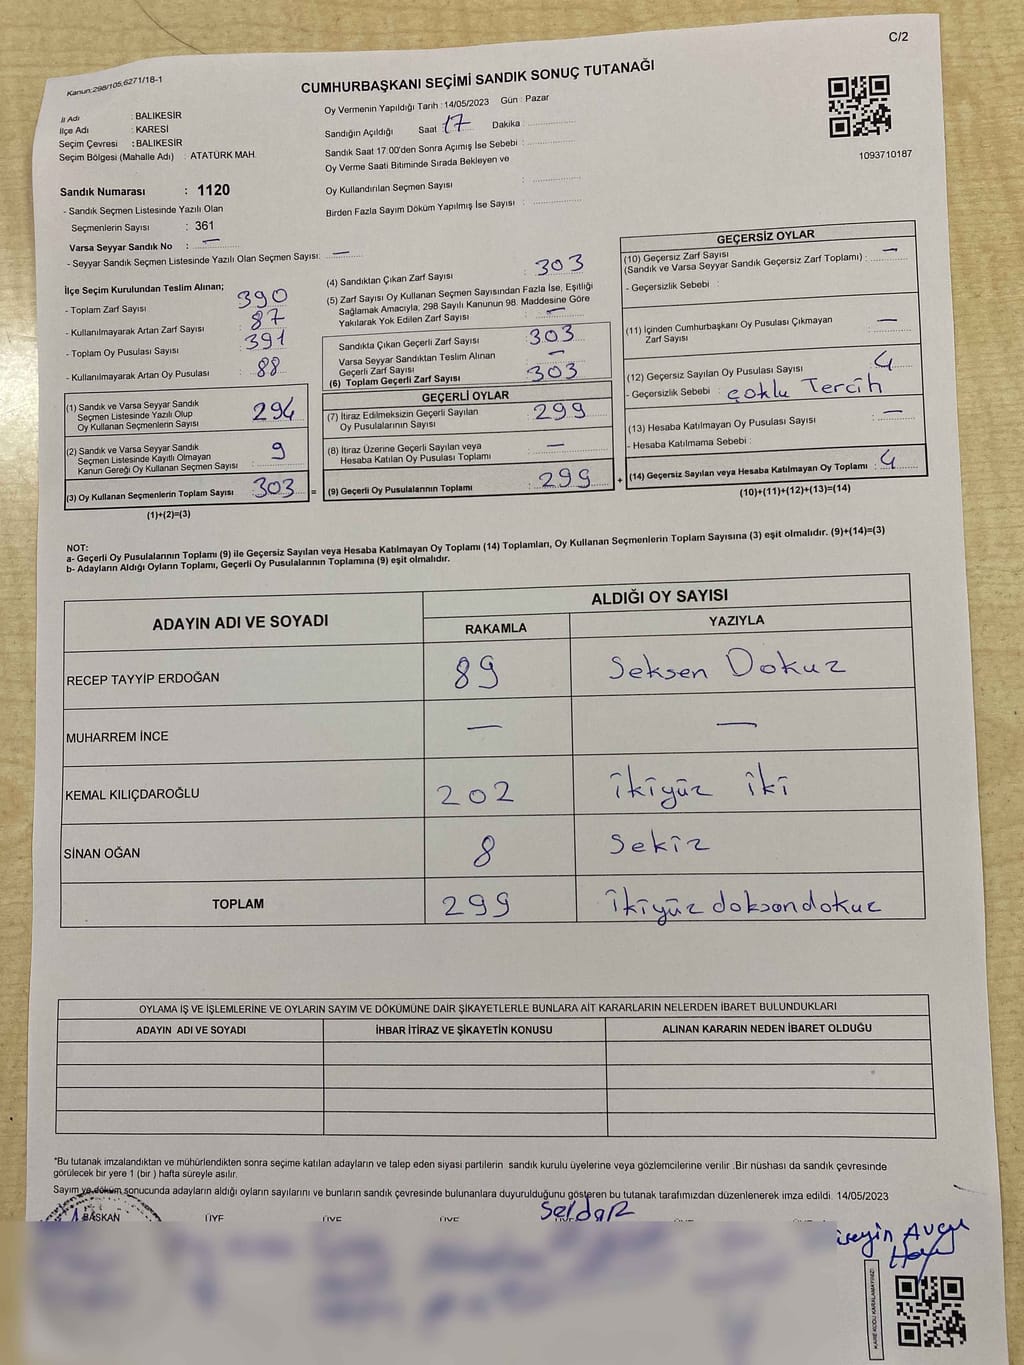 C/2
Kanun:298/105,6271/18-1
CUMHURBAŞKANI SEÇİMİ SANDIK SONUÇ TUTANAĞI
İl Adı : BALIKESİR
İlçe Adı : KARESİ
Seçim Çevresi : BALIKESİR
Seçim Bölgesi (Mahalle Adı) : ATATÜRK MAH.
Oy Vermenin Yapıldığı Tarih : 14/05/2023 Gün : Pazar
Sandığın Açıldığı Saat 17 Dakika :
Sandık Saat 17:00'den Sonra Açımış İse Sebebi :
Oy Verme Saati Bitiminde Sırada Bekleyen ve
Oy Kullandırılan Seçmen Sayısı :
Birden Fazla Sayım Döküm Yapılmış İse Sayısı :
1093710187
Sandık Numarası : 1120
- Sandık Seçmen Listesinde Yazılı Olan
Seçmenlerin Sayısı : 361
Varsa Seyyar Sandık No : —
- Seyyar Sandık Seçmen Listesinde Yazılı Olan Seçmen Sayısı: —
İlçe Seçim Kurulundan Teslim Alınan;
- Toplam Zarf Sayısı : 390
- Kullanılmayarak Artan Zarf Sayısı : 87
- Toplam Oy Pusulası Sayısı : 391
- Kullanılmayarak Artan Oy Pusulası : 88
(1) Sandık ve Varsa Seyyar Sandık
Seçmen Listesinde Yazılı Olup
Oy Kullanan Seçmenlerin Sayısı : 294
(2) Sandık ve Varsa Seyyar Sandık
Seçmen Listesinde Kayıtlı Olmayan
Kanun Gereği Oy Kullanan Seçmen Sayısı : 9
(3) Oy Kullanan Seçmenlerin Toplam Sayısı : 303 =
(1)+(2)=(3)
(4) Sandıktan Çıkan Zarf Sayısı : 303
(5) Zarf Sayısı Oy Kullanan Seçmen Sayısından Fazla İse, Eşitliği
Sağlamak Amacıyla, 298 Sayılı Kanunun 98. Maddesine Göre
Yakılarak Yok Edilen Zarf Sayısı : —
Sandıkta Çıkan Geçerli Zarf Sayısı : 303
Varsa Seyyar Sandıktan Teslim Alınan
Geçerli Zarf Sayısı : —
(6) Toplam Geçerli Zarf Sayısı : 303
GEÇERLİ OYLAR
(7) İtiraz Edilmeksizin Geçerli Sayılan
Oy Pusulalarının Sayısı : 299
(8) İtiraz Üzerine Geçerli Sayılan veya
Hesaba Katılan Oy Pusulası Toplamı : —
(9) Geçerli Oy Pusulalarının Toplamı : 299 +
GEÇERSİZ OYLAR
(10) Geçersiz Zarf Sayısı
(Sandık ve Varsa Seyyar Sandık Geçersiz Zarf Toplamı) : —
- Geçersizlik Sebebi :
(11) İçinden Cumhurbaşkanı Oy Pusulası Çıkmayan
Zarf Sayısı : —
(12) Geçersiz Sayılan Oy Pusulası Sayısı : 4
- Geçersizlik Sebebi : çoklu Tercih
(13) Hesaba Katılmayan Oy Pusulası Sayısı : —
- Hesaba Katılmama Sebebi :
(14) Geçersiz Sayılan veya Hesaba Katılmayan Oy Toplamı : 4
(10)+(11)+(12)+(13)=(14)
NOT:
a- Geçerli Oy Pusulalarının Toplamı (9) ile Geçersiz Sayılan veya Hesaba Katılmayan Oy Toplamı (14) Toplamları, Oy Kullanan Seçmenlerin Toplam Sayısına (3) eşit olmalıdır. (9)+(14)=(3)
b- Adayların Aldığı Oyların Toplamı, Geçerli Oy Pusulalarının Toplamına (9) eşit olmalıdır.
ADAYIN ADI VE SOYADI
ALDIĞI OY SAYISI
RAKAMLA YAZIYLA
RECEP TAYYİP ERDOĞAN 89 Seksen Dokuz
MUHARREM İNCE — —
KEMAL KILIÇDAROĞLU 202 İkiyüz iki
SİNAN OĞAN 8 Sekiz
TOPLAM 299 İkiyüz doksandokuz
OYLAMA İŞ VE İŞLEMLERİNE VE OYLARIN SAYIM VE DÖKÜMÜNE DAİR ŞİKAYETLERLE BUNLARA AİT KARARLARIN NELERDEN İBARET BULUNDUKLARI
ADAYIN ADI VE SOYADI İHBAR İTİRAZ VE ŞİKAYETİN KONUSU ALINAN KARARIN NEDEN İBARET OLDUĞU
*Bu tutanak imzalandıktan ve mühürlendikten sonra seçime katılan adayların ve talep eden siyasi partilerin sandık kurulu üyelerine veya gözlemcilerine verilir .Bir nüshası da sandık çevresinde
görülecek bir yere 1 (bir ) hafta süreyle asılır.
Sayım ve döküm sonucunda adayların aldığı oyların sayılarını ve bunların sandık çevresinde bulunanlara duyurulduğunu gösteren bu tutanak tarafımızdan düzenlenerek imza edildi. 14/05/2023
BAŞKAN ÜYE ÜYE ÜYE ÜYE
Serdar
KARE KODU KARALAMAYINIZ!